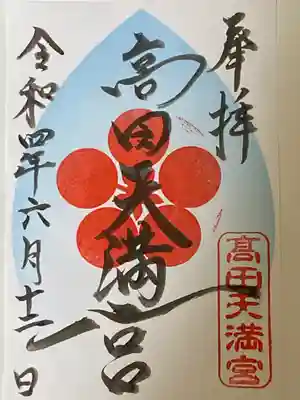 奉拝
高田天満宮
令和四年六月十二日
髙田天満宮